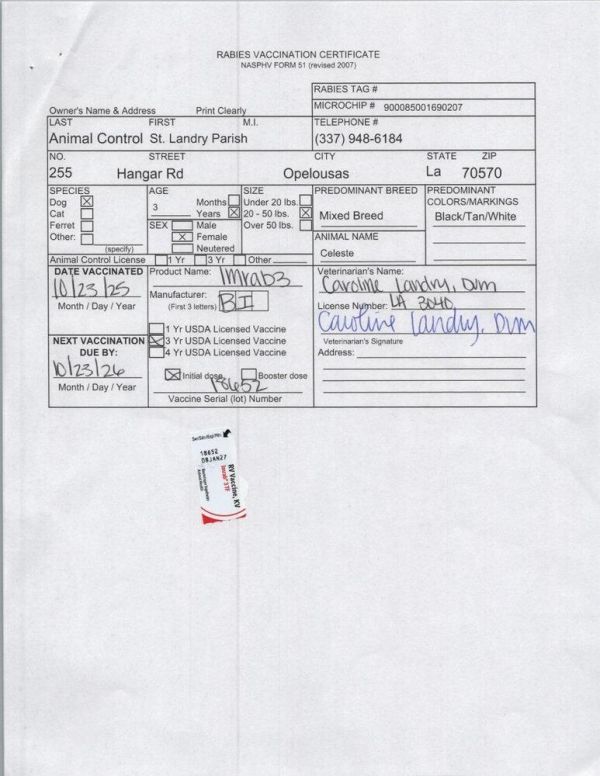 RABIES VACCINATION CERTIFICATE
NASPHV FORM 51 (revised 2007)
RABIES TAG #
Owner's Name & Address Print Clearly
MICROCHIP # 900085001690207
LAST FIRST M.I.
TELEPHONE #
Animal Control St. Landry Parish
(337) 948-6184
NO. STREET CITY STATE ZIP
255 Hangar Rd Opelousas La 70570
SPECIES AGE SIZE PREDOMINANT BREED PREDOMINANT COLORS/MARKINGS
Dog X 3 Months Under 20 lbs.
Cat Years X 20 - 50 lbs. X Mixed Breed Black/Tan/White
Ferret SEX Male Over 50 lbs.
Other: X Female ANIMAL NAME
(specify) Neutered Celeste
Animal Control License 1 Yr 3 Yr Other
DATE VACCINATED Product Name: Imrab3 Veterinarian's Name:
10/23/25 Caroline Landry, DVM
Month / Day / Year Manufacturer: BI License Number: LA 3040
(First 3 letters) Caroline Landry, DVM
1 Yr USDA Licensed Vaccine
NEXT VACCINATION X 3 Yr USDA Licensed Vaccine Veterinarian's Signature
DUE BY: 4 Yr USDA Licensed Vaccine Address:
10/23/26 X Initial dose Booster dose
18652
Month / Day / Year
Vaccine Serial (lot) Number
18652
08JAN27
RV Vaccine, KV
Imrab® 3 TF